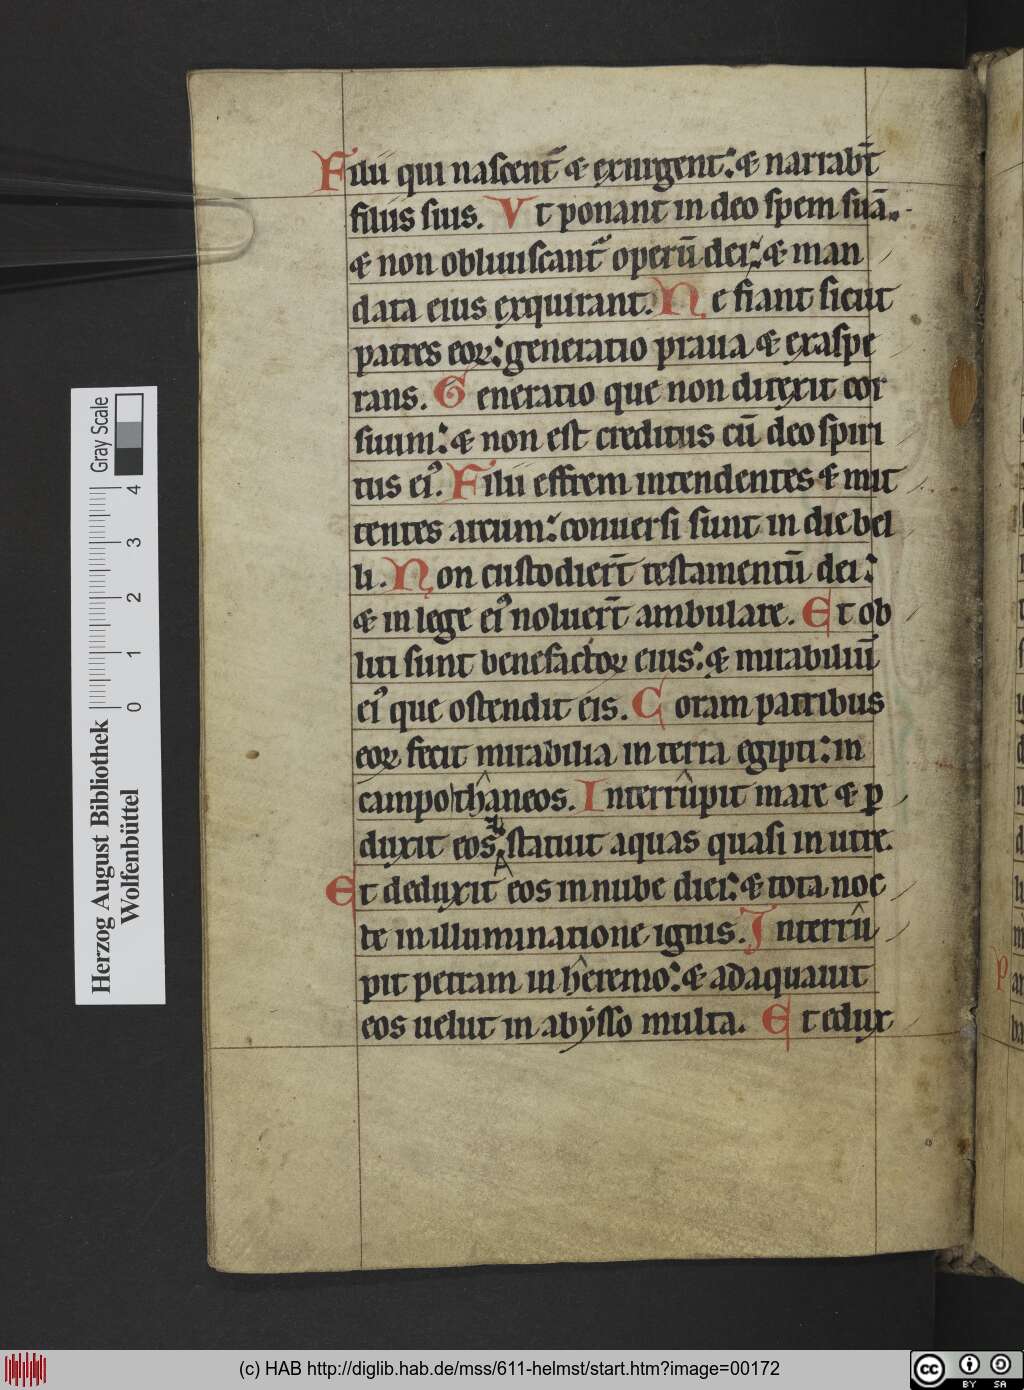 Filii qui nascent̄ & exurgent: & narrabt̄
filiis suis. Vt ponant in deo spem suā.
& non obliuiscant̄ operū dei: & man
data eius exquirant. Ne fiant sicut
patres eoꝝ: generatio praua & exaspe
rans. Generatio que non direxit cor
suum: & non est creditus cū deo spiri
tus ei᾽. Filii effrem intendentes & mit
tentes arcum: conuersi sunt in die bel
li. Non custodiert̄ testamentū dei:
& in lege ei᾽ noluert̄ ambulare. Et ob
liti sunt benefactoꝝ eius: & mirabiliū
ei᾽ que ostendit eis. Coram patribus
eoꝝ fecit mirabilia in terra egipti: in
campo thaneos. Interrupit mare & ꝑ
duxit eos & statuit aquas quasi in utre.
Et deduxit eos in nube diei: & tota noc
te in illuminatione ignis. Interru
pit petram in heremo: & adaquauit
eos uelut in abysso multa. Et edux
Gray Scale
0 1 2 3 4
Herzog August Bibliothek
Wolfenbüttel
(c) HAB http://diglib.hab.de/mss/611-helmst/start.htm?image=00172
cc BY SA